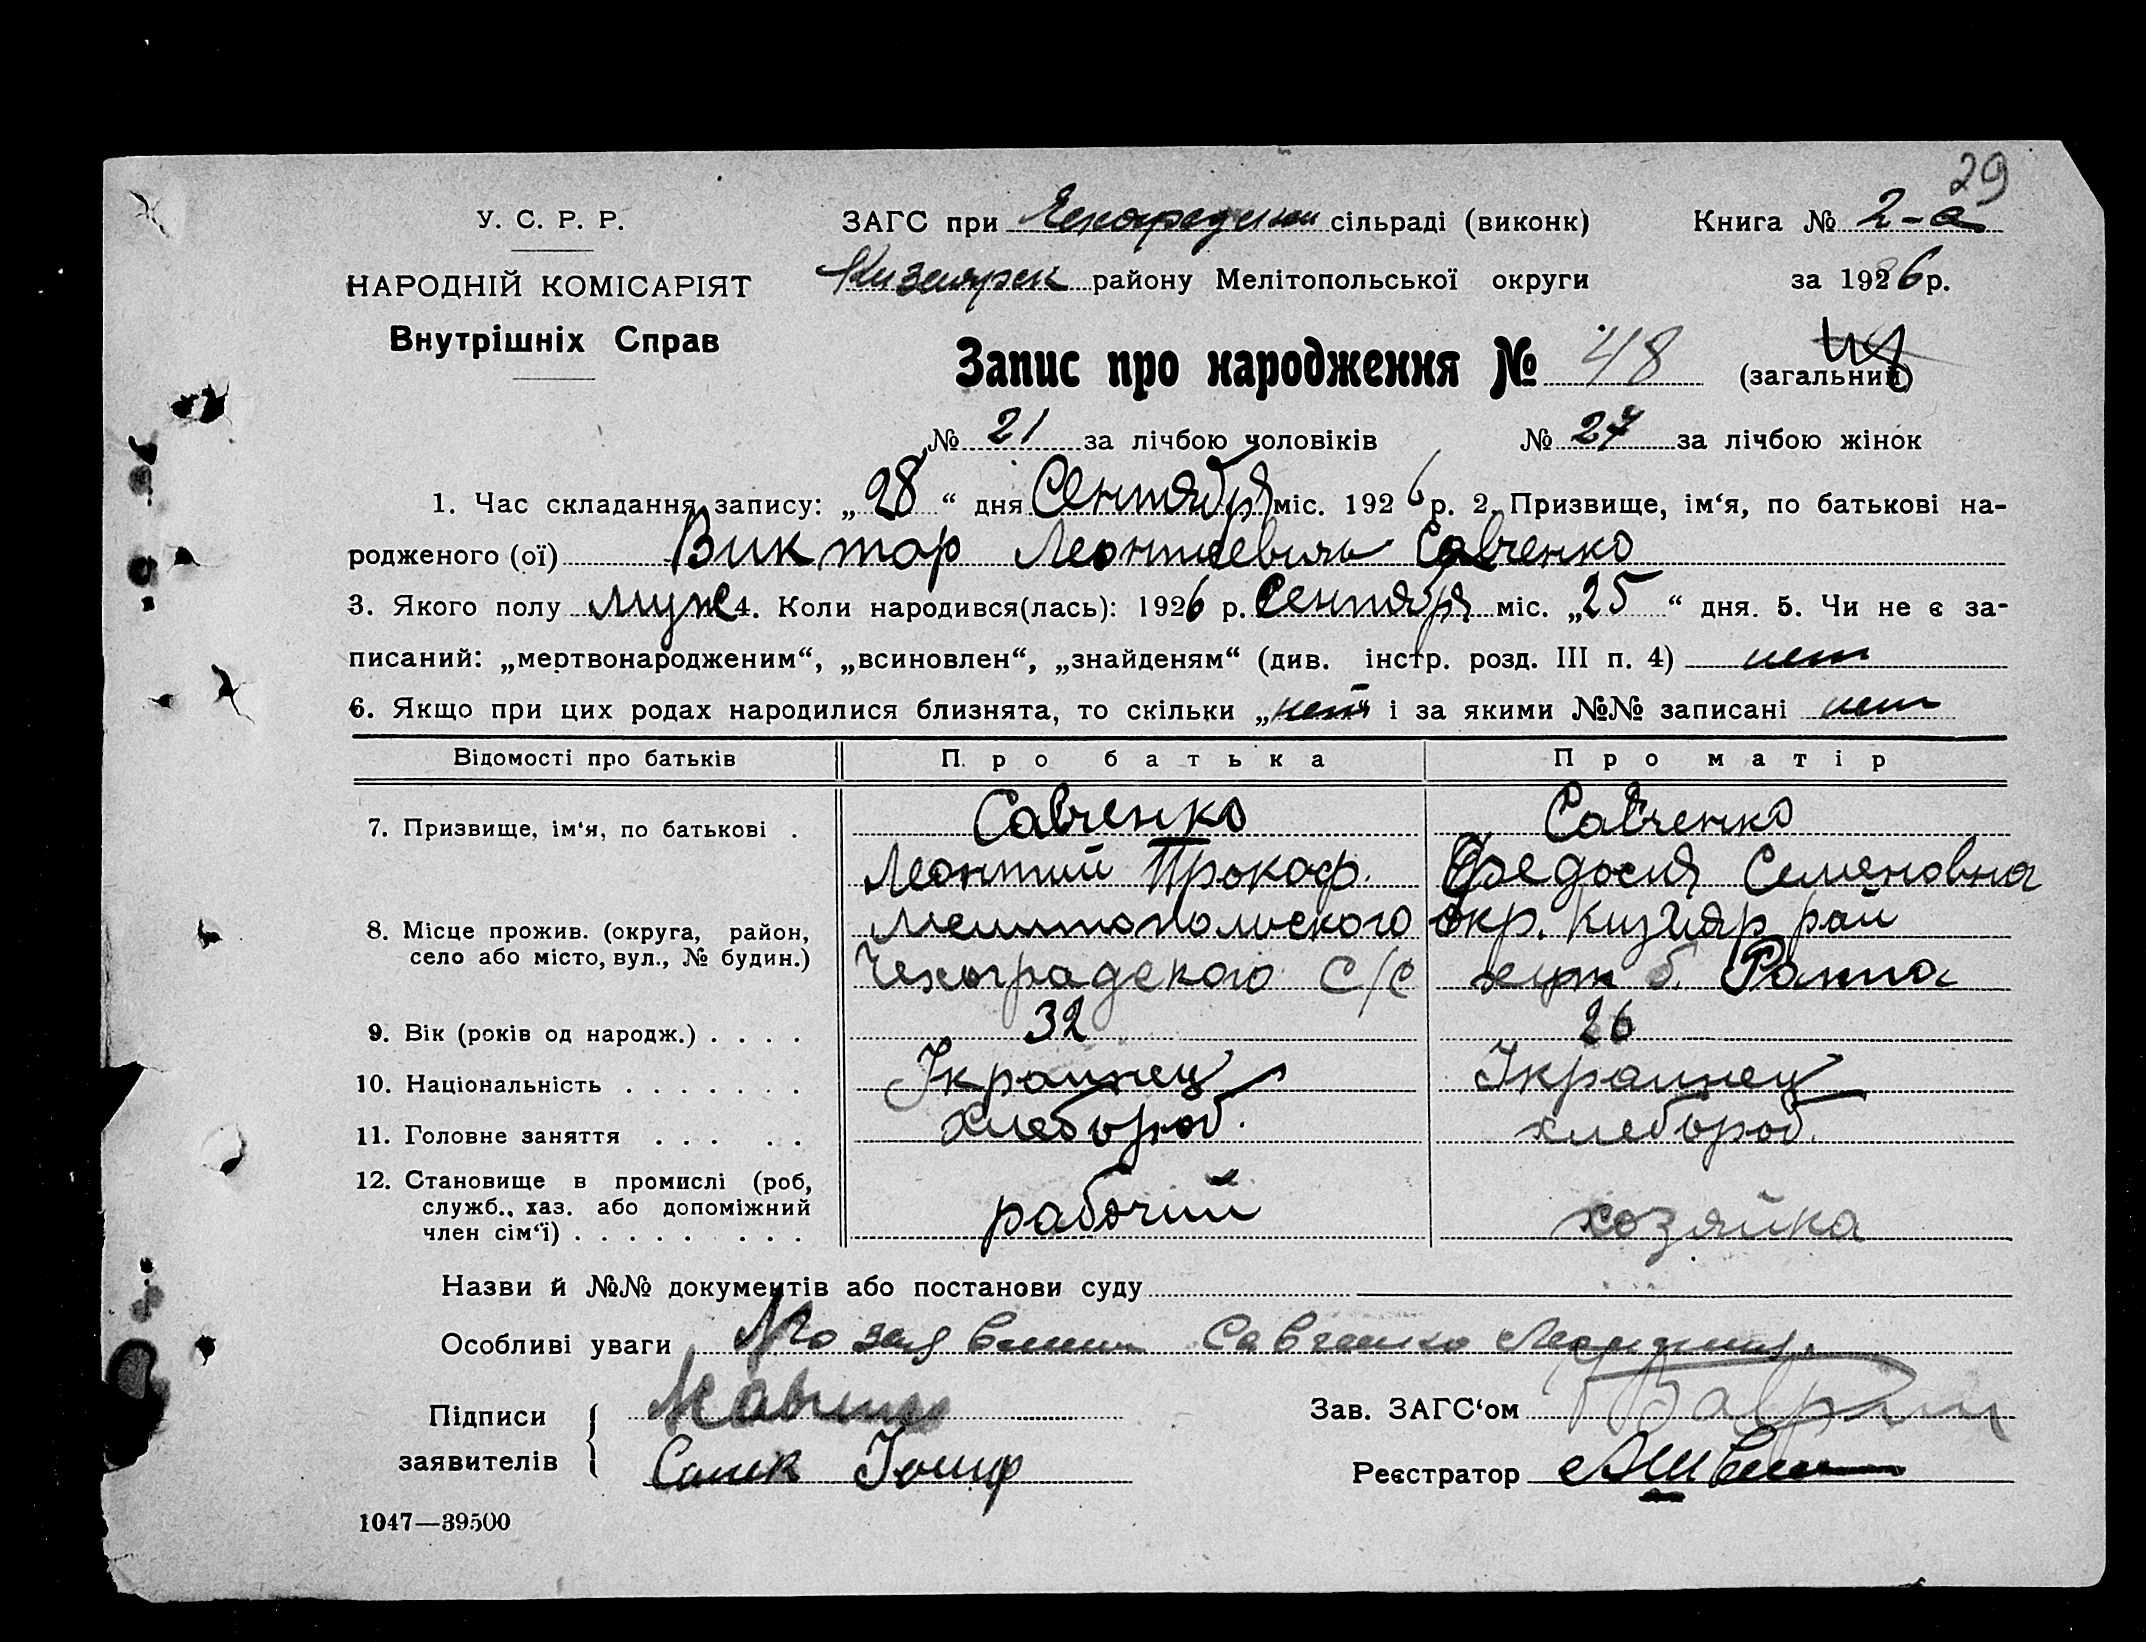 29
У. С. Р. Р.
ЗАГС при сільраді (виконк)
Книга № 2-а
НАРОДНІЙ КОМІСАРІЯТ
Кизиярск району Мелітопольської округи
за 1926 р.
Внутрішніх Справ
Запис про народження № 48 (загальний)
№ 21 за лічбою чоловіків № 27 за лічбою жінок
1. Час складання запису: „28“ дня Сентября міс. 1926 р. 2. Призвище, ім‘я, по батькові на-
родженого (ої) Виктор Леонтиевичь Савченко
3. Якого полу муж 4. Коли народився(лась): 1926 р. Сентября міс. „25“ дня. 5. Чи не є за-
писаний: „мертвонародженим“, „всиновлен“, „знайденям“ (див. інстр. розд. III п. 4) нет
6. Якщо при цих родах народилися близнята, то скільки „нет“ і за якими №№ записані нет
Відомості про батьків Про батька Про матір
7. Призвище, ім‘я, по батькові . Савченко Савченко
Леонтий Прокоф. Федосия Семеновна
8. Місце прожив. (округа, район, Мелитопольского окр. Кизияр рай
село або місто, вул., № будин.) Чехоградского С/С хут б. Ранта
9. Вік (років од народж.) . . . . 32 26
10. Національність . . . . . . . Украинец Украинец
11. Головне заняття . . . . . Хлебороб. хлебороб.
12. Становище в промислі (роб,
служб., хаз. або допоміжний рабочий хозяйка
член сім‘ї) . . . . . . . .
Назви й №№ документів або постанови суду
Особливі уваги По заявлении Савченко Леонтия.
Підписи
заявителів
Зав. ЗАГС‘ом
Реєстратор
1047—39500